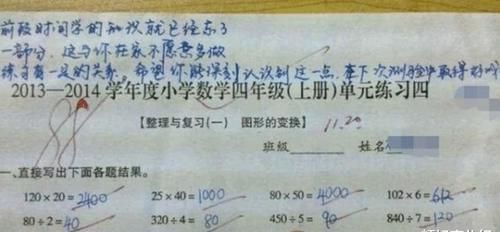 前段时间学的知识就已经忘了
一部分，这与你在家不愿意多做
练习有一定的关系。希望你能深刻认识到这一点，在下次测验中取得好
2013—2014学年度小学数学四年级(上册)单元练习四
88
【整理与复习(一) 图形的变换】 11.20
班级 姓名
一、直接写出下面各题结果。
120×20=2400 25×40=1000 80×50=4000 102×6=612
80÷2=40 320÷4=80 450÷5=90 840÷7=120